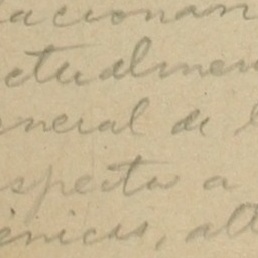 lacionan
ctualmen
eneral de l
specto a
énicas, alt